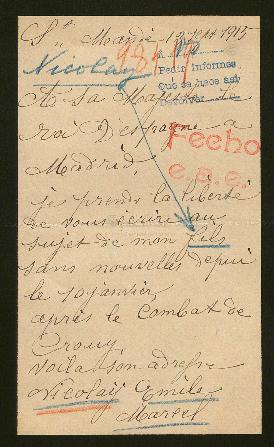 St Mandé 12 Juin 1915
Nicolay
Pedir informes
Que se hace así
A sa Majesté Le
roi D'espagne a
Madrid.
Fecho
je prends la liberté
de vous écrire au
sujet de mon fils
sans nouvelles depui
le 10 janvier
après le Combat de
Crouy
voila son adresse
Nicolaÿ Emile
Marcel